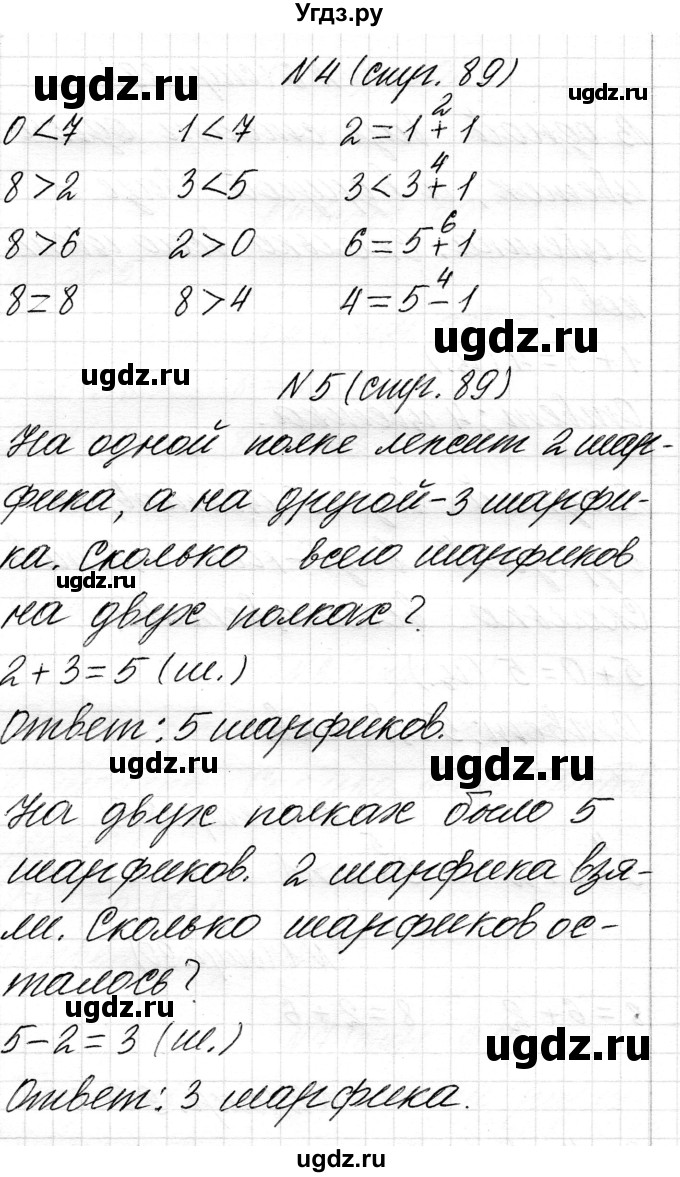 Угдз.ру
ugdz.ru
N4 (стр. 89)
ugdz.ru
0<7 1<7 2=1+1 2
8>2 3<5 3<3+1 4
8>6 2>0 6=5+1 6
8=8 8>4 4=5-1 4
ugdz.ru
ugdz.ru
N5 (стр. 89)
На одной полке лежит 2 шар-
фика, а на другой-3 шарфи-
ка. Сколько всего шарфиков
ugdz.ru
на двух полках?
2+3=5 (ш.)
Ответ: 5 шарфиков.
ugdz.ru
ugdz.ru
На двух полках было 5
шарфиков. 2 шарфика взя-
ли. Сколько шарфиков ос-
талось?
ugdz.ru
5-2=3 (ш.)
ugdz.ru
Ответ: 3 шарфика.
ugdz.ru